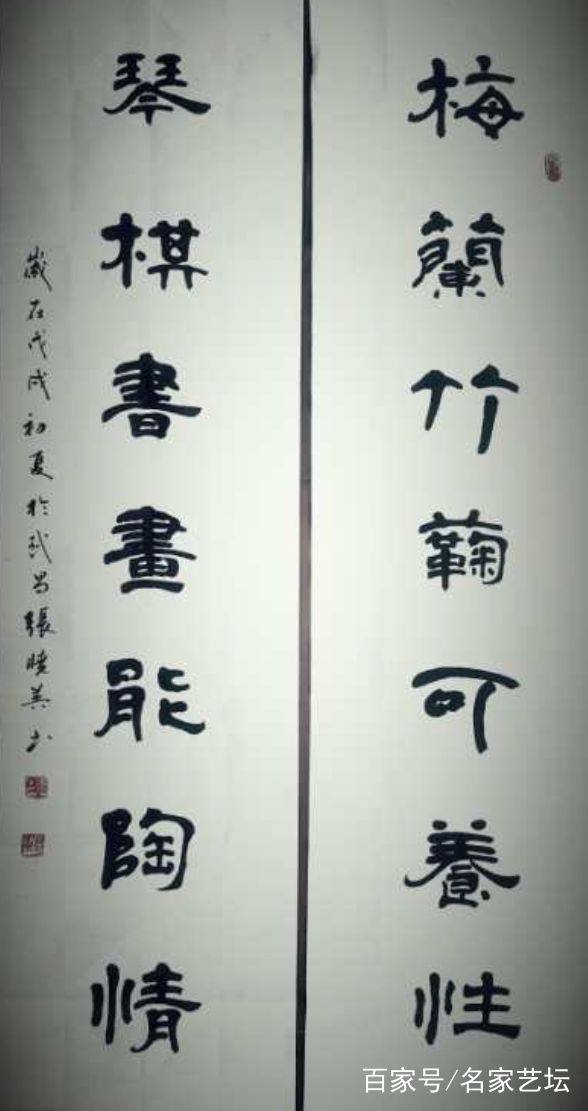 梅蘭竹蘜可養性
琴棋書畫能陶情
歲在戊戌初夏於武昌張曉美书
百家号/名家艺坛